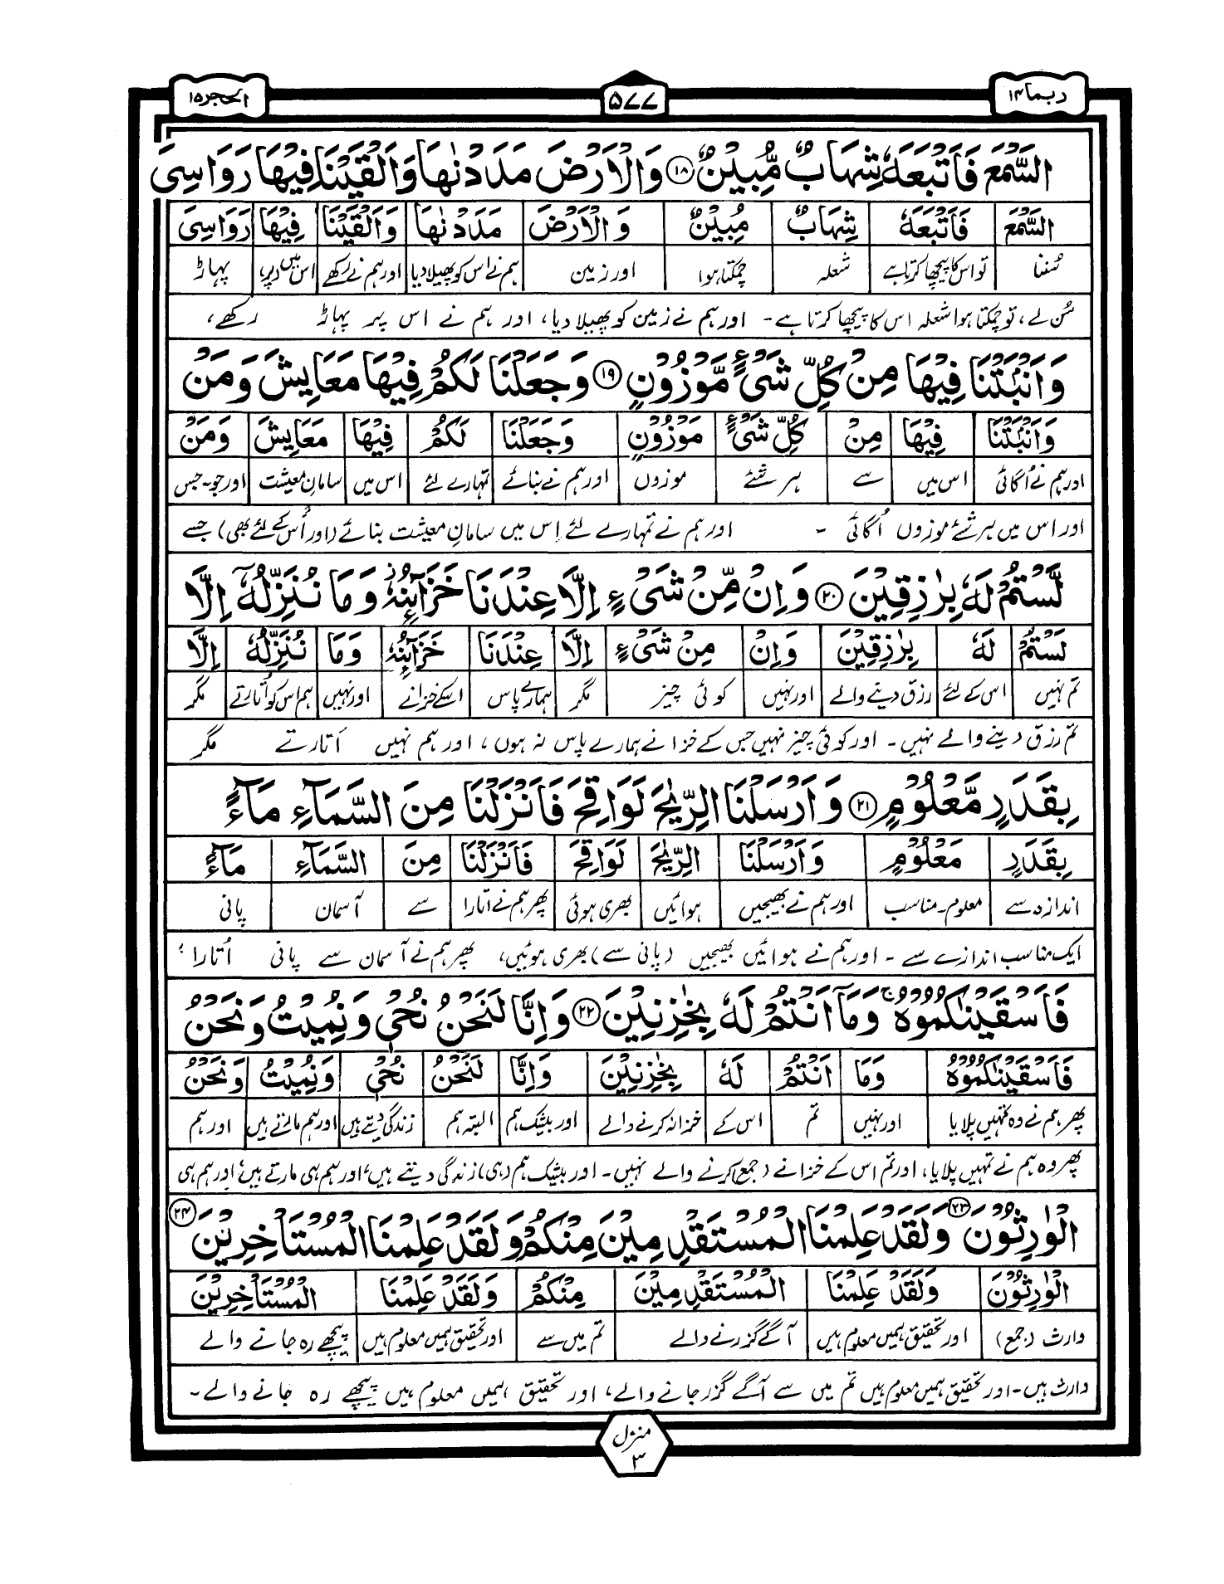 ربما ١٤
٥٧٧
الحجر ١٥
السَّمْعَ فَاَتْبَعَهٗ شِهَابٌ مُّبِيْنٌ ١٨ وَالْاَرْضَ مَدَدْنٰهَا وَاَلْقَيْنَا فِيْهَا رَوَاسِىَ
السَّمْعَ فَاَتْبَعَهٗ شِهَابٌ مُبِيْنٌ وَالْاَرْضَ مَدَدْنٰهَا وَاَلْقَيْنَا فِيْهَا رَوَاسِىَ
سُننا تو اس کا پیچھا کرتا ہے شعلہ چمکتا ہوا اور زمین ہم نے اس کو پھیلا دیا اور ہم نے رکھے اس میں (پر) پہاڑ
سُن لے، تو چمکتا ہوا شعلہ اس کا پیچھا کرتا ہے۔ اور ہم نے زمین کو پھیلا دیا، اور ہم نے اس پر پہاڑ رکھے،
وَاَنْۢبَتْنَا فِيْهَا مِنْ كُلِّ شَىْءٍ مَّوْزُوْنٍ ١٩ وَجَعَلْنَا لَكُمْ فِيْهَا مَعَايِشَ وَمَنْ
وَاَنْۢبَتْنَا فِيْهَا مِنْ كُلِّ شَىْءٍ مَوْزُوْنٍ وَجَعَلْنَا لَكُمْ فِيْهَا مَعَايِشَ وَمَنْ
اور ہم نے اُگائی اس میں سے ہر شئے موزوں اور ہم نے بنائے تمہارے لئے اس میں سامانِ معیشت اور جو۔ جس
اور اس میں ہر شئے موزوں اُگائی ۔ اور ہم نے تمہارے لئے اِس میں سامانِ معیشت بنائے (اور اُس کے لئے بھی) جسے
لَّسْتُمْ لَهٗ بِرٰزِقِيْنَ ٢٠ وَاِنْ مِّنْ شَىْءٍ اِلَّا عِنْدَنَا خَزَآىِٕنُهٗ وَمَا نُنَزِّلُهٗٓ اِلَّا
لَسْتُمْ لَهٗ بِرٰزِقِيْنَ وَاِنْ مِنْ شَىْءٍ اِلَّا عِنْدَنَا خَزَآىِٕنُهٗ وَمَا نُنَزِّلُهٗٓ اِلَّا
تم نہیں اس کے لئے رزق دینے والے اور نہیں کوئی چیز مگر ہمارے پاس اسکے خزانے اور نہیں ہم اس کو اُتارتے مگر
تم رزق دینے والے نہیں۔ اور کوئی چیز نہیں جس کے خزانے ہمارے پاس نہ ہوں، اور ہم نہیں اُتارتے مگر
بِقَدَرٍ مَّعْلُوْمٍ ٢١ وَاَرْسَلْنَا الرِّيٰحَ لَوَاقِحَ فَاَنْزَلْنَا مِنَ السَّمَآءِ مَآءً
بِقَدَرٍ مَعْلُوْمٍ وَاَرْسَلْنَا الرِّيٰحَ لَوَاقِحَ فَاَنْزَلْنَا مِنَ السَّمَآءِ مَآءً
اندازہ سے معلوم۔مناسب اور ہم نے بھیجیں ہوائیں بھری ہوئی پھر ہم نے اُتارا سے آسمان پانی
ایک مناسب اندازے سے ۔ اور ہم نے ہوائیں بھیجیں (پانی سے) بھری ہوئیں، پھر ہم نے آسمان سے پانی اُتارا ؛
فَاَسْقَيْنٰكُمُوْهُ وَمَآ اَنْتُمْ لَهٗ بِخٰزِنِيْنَ ٢٢ وَاِنَّا لَنَحْنُ نُحْىٖ وَنُمِيْتُ وَنَحْنُ
فَاَسْقَيْنٰكُمُوْهُ وَمَا اَنْتُمْ لَهٗ بِخٰزِنِيْنَ وَاِنَّا لَنَحْنُ نُحْىٖ وَنُمِيْتُ وَنَحْنُ
پھر ہم نے وہ تمہیں پلایا اور نہیں تم اس کے خزانہ کرنے والے اور بیشک ہم البتہ ہم زندگی دیتے ہیں اور ہم مارتے ہیں اور ہم
پھر وہ ہم نے تمہیں پلایا، اور تم اس کے خزانے (جمع) کرنے والے نہیں۔ اور بیشک ہم (ہی) زندگی دیتے ہیں، اور ہم ہی مارتے ہیں، اور ہم ہی
الْوٰرِثُوْنَ ٢٣ وَلَقَدْ عَلِمْنَا الْمُسْتَقْدِمِيْنَ مِنْكُمْ وَلَقَدْ عَلِمْنَا الْمُسْتَاْخِرِيْنَ ٢٤
الْوٰرِثُوْنَ وَلَقَدْ عَلِمْنَا الْمُسْتَقْدِمِيْنَ مِنْكُمْ وَلَقَدْ عَلِمْنَا الْمُسْتَاْخِرِيْنَ
وارث (جمع) اور تحقیق ہمیں معلوم ہیں آگے گزرنے والے تم میں سے اور تحقیق ہمیں معلوم ہیں پیچھے رہ جانے والے
وارث ہیں۔ اور تحقیق ہمیں معلوم ہیں تم میں سے آگے گزر جانے والے، اور تحقیق ہمیں معلوم ہیں پیچھے رہ جانے والے۔
منزل
٣